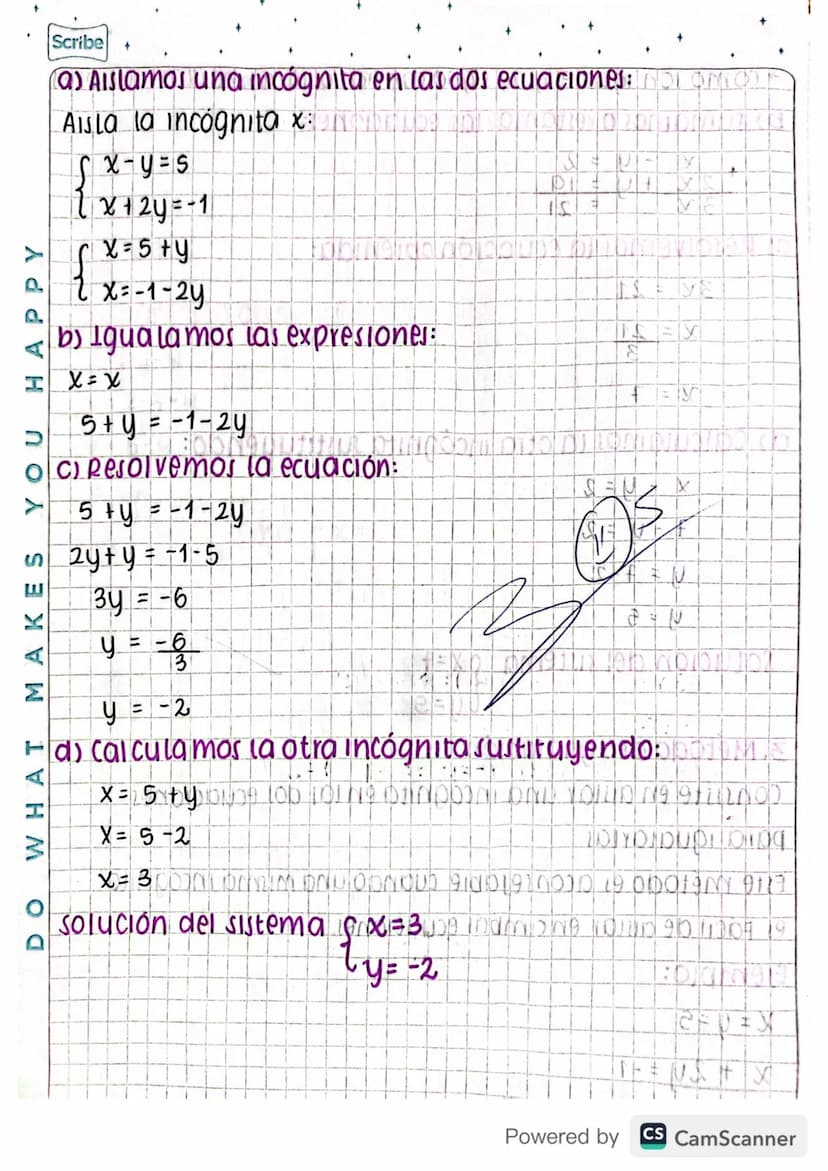 Scribe
a) Aislamos una incógnita en las dos ecuaciones:
Aisla la incógnita x:
x-y=5
x+2y=-1
x=5+y
x=-1-2y
b) Igualamos las expresiones:
x=x
5+y = -1-2y
c) Resolvemos la ecuación:
5+y = -1-2y
2y+y = -1-5
3y = -6
y = -6
3
y = -2
d) Calculamos la otra incógnita sustituyendo:
x= 5+y
x= 5-2
x= 3
solución del sistema { x=3
y= -2
DO WHAT MAKES YOU HAPPY
Powered by CS CamScanner